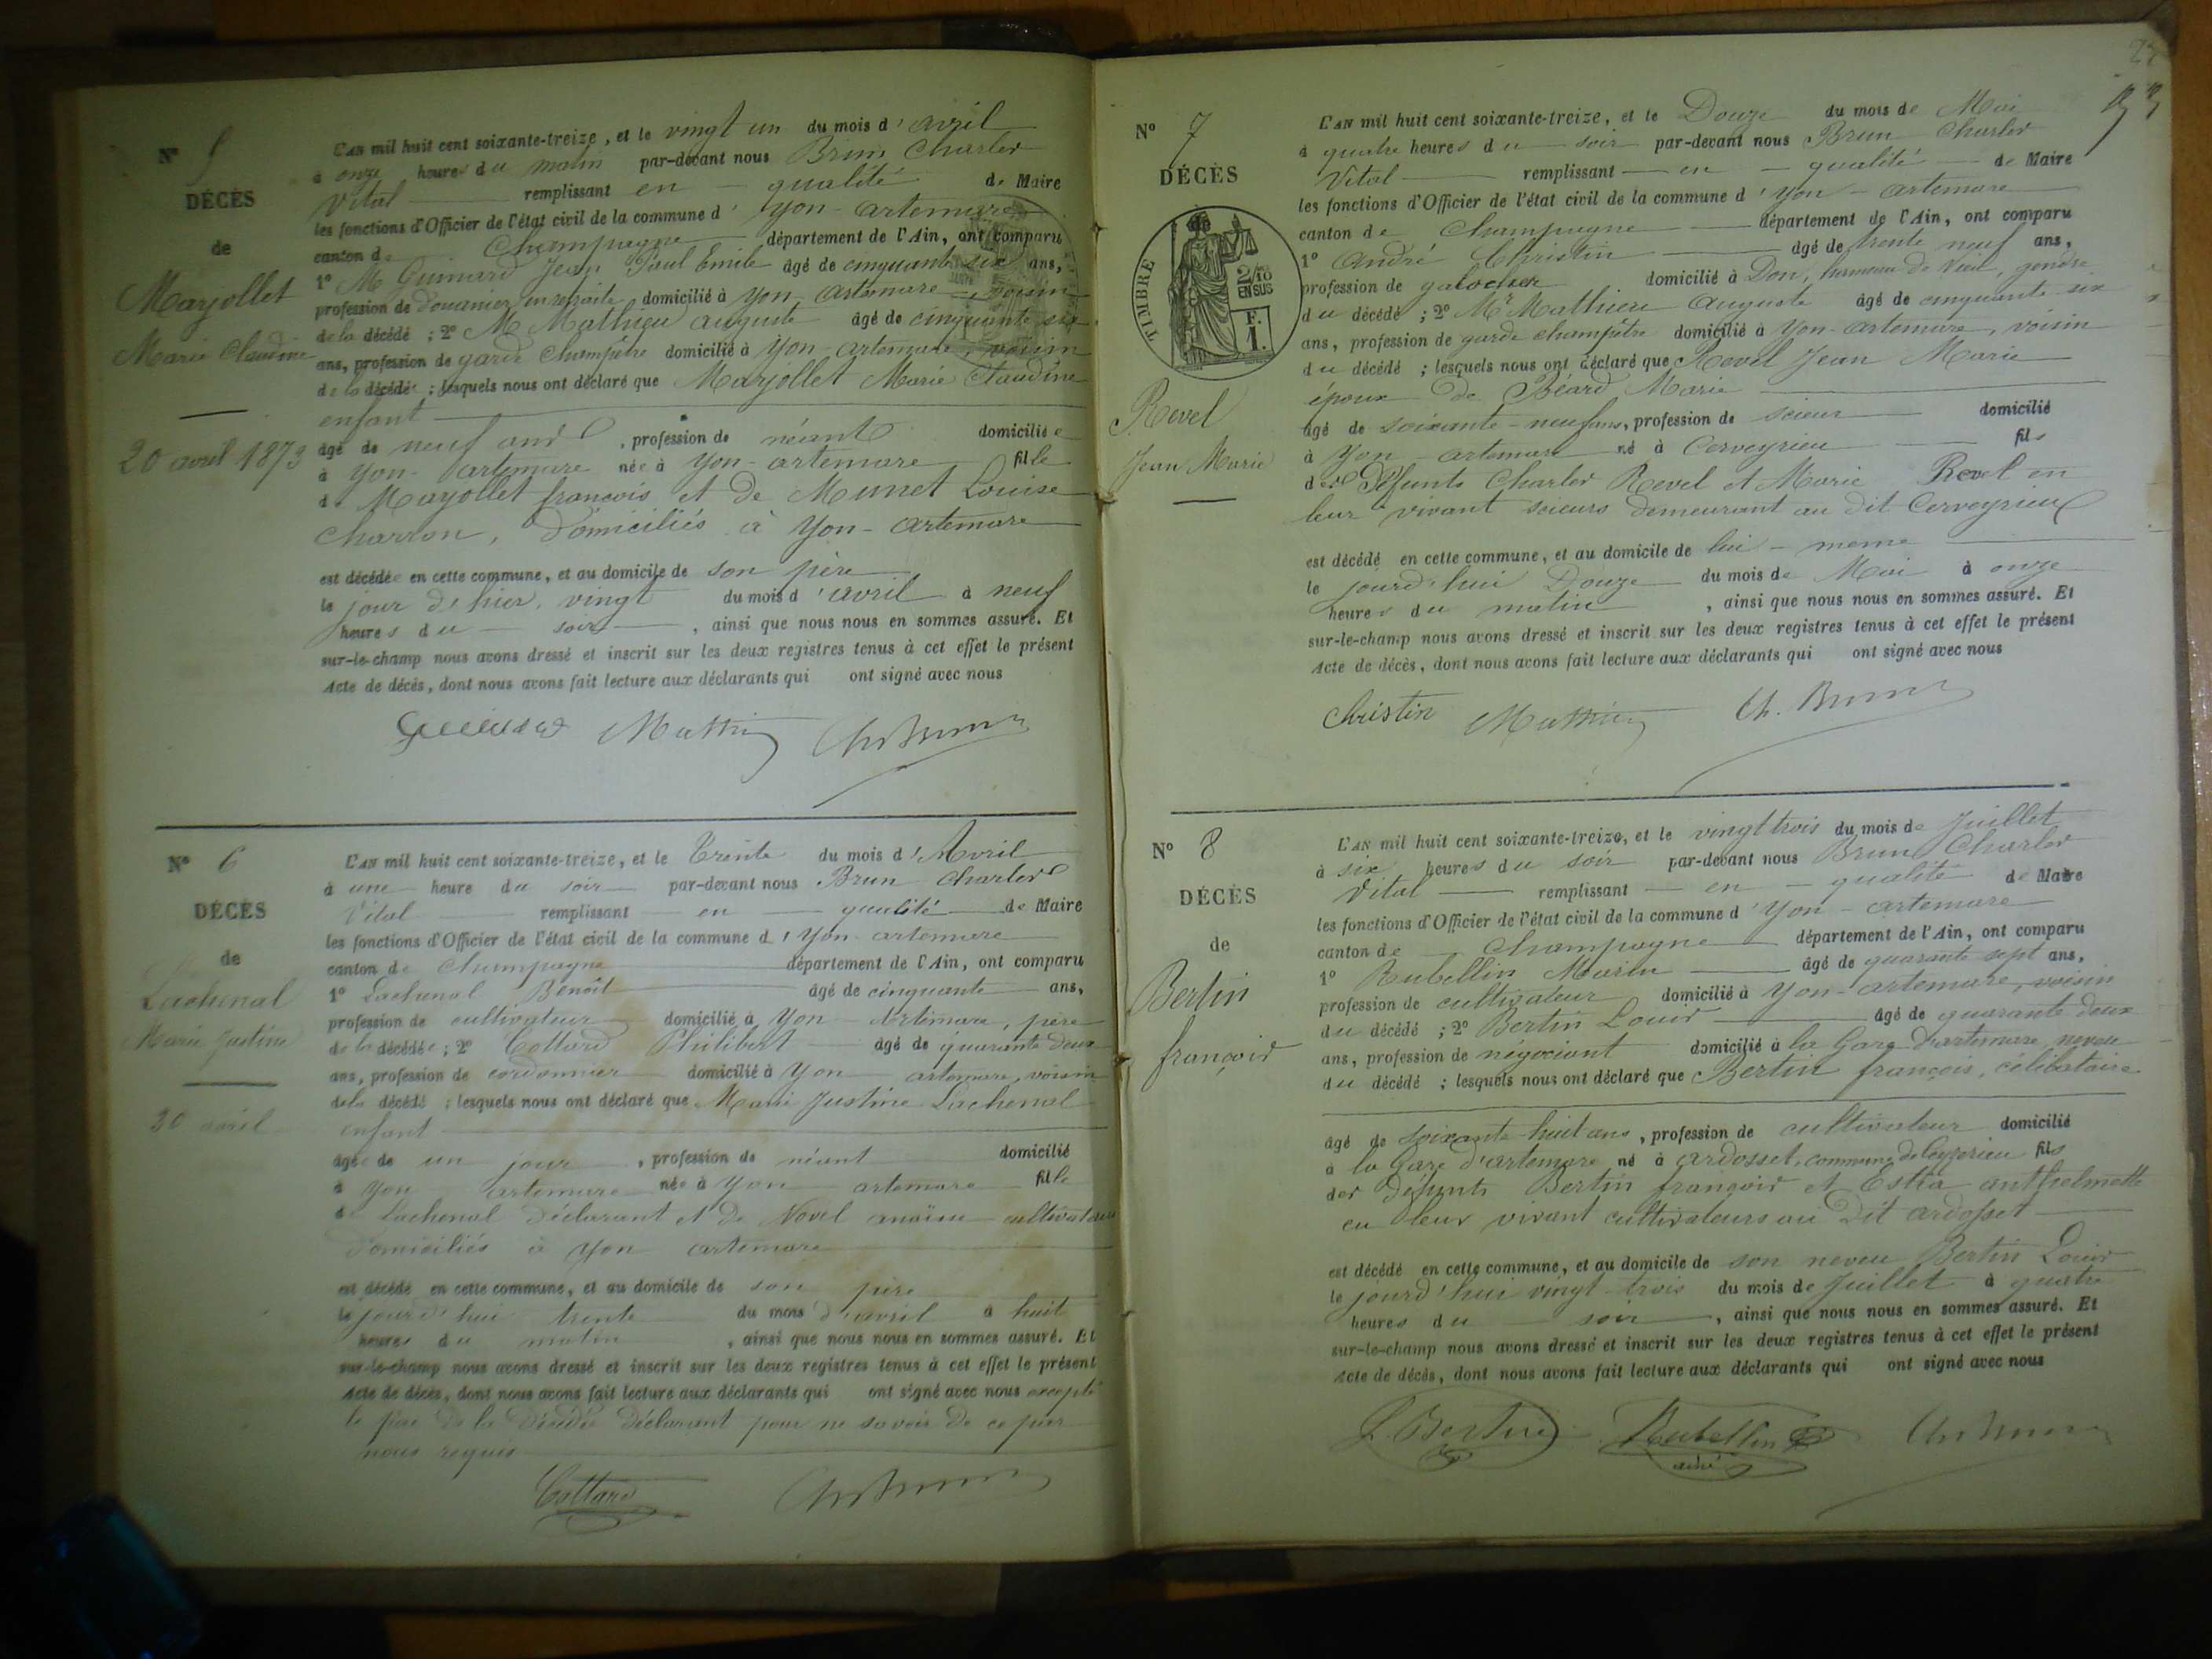 N° 5
DÉCÈS
de
Marjollet
Marie Claudine
20 avril 1873
L'AN mil huit cent soixante-treize, et le vingt un du mois d'avril
à onze heures du matin par-devant nous Brun Charles
Vital remplissant en qualité de Maire
les fonctions d'Officier de l'état civil de la commune d'Yon-artemare
canton de Champagne département de l'Ain, ont comparu
1° M Guinard Jean Paul Emile âgé de cinquante six ans,
profession de douanier en retraite domicilié à Yon-artemare voisin
de la décédé ; 2° M Mathieu auguste âgé de cinquante six
ans, profession de garde Champêtre domicilié à Yon-artemare, voisin
de la décédée ; lesquels nous ont déclaré que Marjollet Marie Claudine
enfant
âgé de neuf ans, profession de néant domiciliée
à Yon-artemare née à Yon-artemare fille
de Marjollet françois et de Munet Louise
charron, domiciliés à Yon-artemare
est décédée en cette commune, et au domicile de son père
le jour d'hier, vingt du mois d'avril à neuf
heures du soir, ainsi que nous nous en sommes assuré. Et
sur-le-champ nous avons dressé et inscrit sur les deux registres tenus à cet effet le présent
Acte de décès, dont nous avons fait lecture aux déclarants qui ont signé avec nous
Mathieu Ch Brun
N° 6
DÉCÈS
de
Lachenal
Marie Justine
30 avril
L'AN mil huit cent soixante-treize, et le Trente du mois d'Avril
à une heure du soir par-devant nous Brun Charles
Vital remplissant en qualité de Maire
les fonctions d'Officier de l'état civil de la commune d'Yon-artemare
canton de Champagne département de l'Ain, ont comparu
1° Lachenal Benoît âgé de cinquante ans,
profession de cultivateur domicilié à Yon-Artemare, père
de la décédée ; 2° Cottard Philibert âgé de quarante deux
ans, profession de cordonnier domicilié à Yon artemare, voisin
de la décédé ; lesquels nous ont déclaré que Marie Justine Lachenal
enfant
âgée de un jour, profession de néant domicilié
à Yon artemare née à Yon artemare fille
de Lachenal déclarant et de Novel cultivateurs
domiciliés à Yon artemare
est décédé en cette commune, et au domicile de son père
le jourd'hui trente du mois d'avril à huit
heures du matin, ainsi que nous nous en sommes assuré. Et
sur-le-champ nous avons dressé et inscrit sur les deux registres tenus à cet effet le présent
Acte de décès, dont nous avons fait lecture aux déclarants qui ont signé avec nous excepté
le père de la décédée déclarant pour ne savoir de ce par
nous requis
Cottard Ch Brun
N° 7
DÉCÈS
TIMBRE
2/10 EN SUS
F. 1.
Revel
Jean Marie
L'AN mil huit cent soixante-treize, et le Douze du mois de Mai
à quatre heures du soir par-devant nous Brun Charles
Vital remplissant en qualité de Maire
les fonctions d'Officier de l'état civil de la commune d'Yon-artemare
canton de Champagne département de l'Ain, ont comparu
1° André Christin âgé de trente neuf ans,
profession de galocher domicilié à Don, hameau de Vieu, gendre
du décédé ; 2° Mr Mathieu Auguste âgé de cinquante six
ans, profession de garde champêtre domicilié à Yon-artemare, voisin
du décédé ; lesquels nous ont déclaré que Revel Jean Marie
époux de Béard Marie
âgé de soixante-neuf ans, profession de scieur domicilié
à Yon-artemare né à Cerveyrieu fils
des Défunts Charles Revel et Marie Revel en
leur vivant scieurs demeurant au dit Cerveyrieu
est décédé en cette commune, et au domicile de lui-meme
le jourd'hui Douze du mois de Mai à onze
heures du matin, ainsi que nous nous en sommes assuré. Et
sur-le-champ nous avons dressé et inscrit sur les deux registres tenus à cet effet le présent
Acte de décès, dont nous avons fait lecture aux déclarants qui ont signé avec nous
Christin Mathieu Ch. Brun
N° 8
DÉCÈS
de
Bertin
françois
L'AN mil huit cent soixante-treize, et le vingt trois du mois de Juillet
à six heures du soir par-devant nous Brun Charles
Vital remplissant en qualité de Maire
les fonctions d'Officier de l'état civil de la commune d'Yon-artemare
canton de Champagne département de l'Ain, ont comparu
1° Rubellin Marin âgé de quarante sept ans,
profession de cultivateur domicilié à Yon-artemare, voisin
du décédé ; 2° Bertin Louis âgé de quarante deux
ans, profession de négociant domicilié à la Gare d'artemare neveu
du décédé ; lesquels nous ont déclaré que Bertin françois, célibataire
âgé de soixante-huit ans, profession de cultivateur domicilié
à la Gare d'artemare né à ardosset, commune de Ceyzerieu fils
des défunts Bertin françois et Estra anthelmette
en leur vivant cultivateurs au dit ardosset
est décédé en cette commune, et au domicile de son neveu Bertin Louis
le jourd'hui vingt-trois du mois de Juillet à quatre
heures du soir, ainsi que nous nous en sommes assuré. Et
sur-le-champ nous avons dressé et inscrit sur les deux registres tenus à cet effet le présent
Acte de décès, dont nous avons fait lecture aux déclarants qui ont signé avec nous
L. Bertin Rubellin ainé Ch Brun